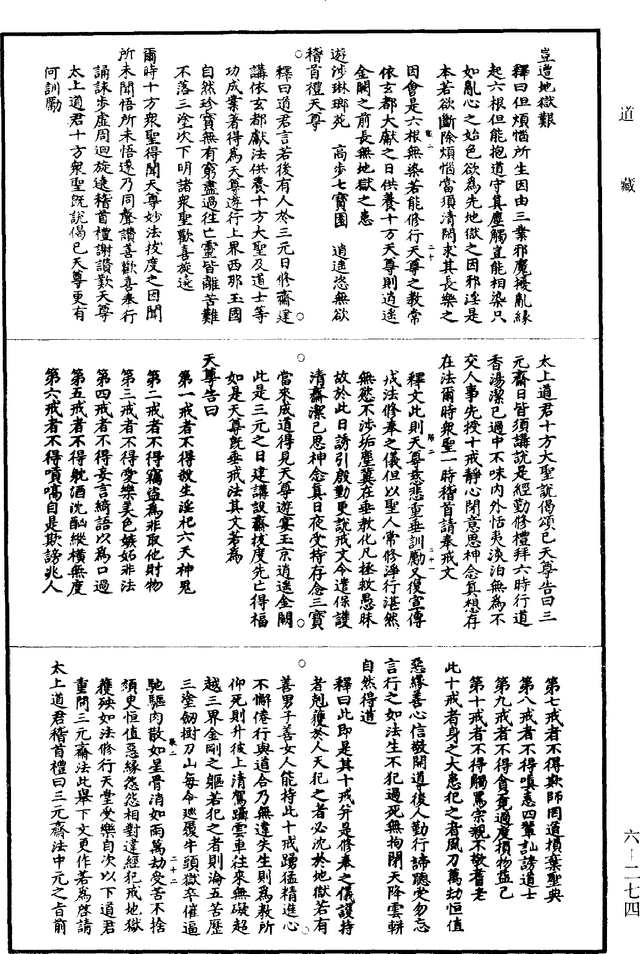 道藏
豈遭地獄艱
釋曰但煩惱所生因由三業邪魔擾亂緣
起六根但能抱道守真塵觸豈能相染只
如亂心之始色欲為先地獄之因邪淫是
本若欲斷除煩惱當須清閑求其長樂之
因會是六根無染若能修行天尊之教常
依玄都大獻之日供養十方天尊則逍遙
金闕之前長無地獄之患
遊涉琳瑯苑　高步七寶園　逍遙恣無欲
稽首禮天尊
釋曰道君言若後有人於三元日修齋建
講依玄都獻法供養十方大聖及道士等
功成業著得為天尊遊行上界西那玉國
自然珍寶無有窮盡過往亡靈皆離苦難
不落三塗次下明諸衆聖歡喜旋遶
爾時十方衆聖得聞天尊妙法拔度之因聞
所未聞悟所未悟遠乃同聲讚善歡喜奉行
誦詠步虛周迴旋遶稽首禮謝讚歎天尊
太上道君十方衆聖既說偈已天尊更有
何訓勵
太上道君十方大聖說偈頌已天尊告曰三
元齋日皆須講說是經勤修禮拜六時行道
香湯潔已過中不味内外恬夷淡泊無為不
交人事先授十戒靜心閉意思神念真想存
在法爾時衆聖一時稽首請奉戒文
釋文此則天尊慈悲重垂訓勵又復宣傳
戒法修奉之儀但以聖人常修淨行湛然
無慾不涉垢塵冀在垂教化凡拯救愚昧
故於此日誘引啟勸更說戒文令遣保護
清齋潔己思神念真日夜受持存念三寶
當來成道得見天尊遊宴玉京逍遙金闕
此是三元之日建講設齋拔度先亡得福
如是天尊既垂戒法其文若為
天尊告曰
第一戒者不得殺生淫祀六天神鬼
第二戒者不得竊盜為非取他財物
第三戒者不得愛樂美色嫉妬非法
第四戒者不得妄言綺語以為口過
第五戒者不得躭酒沈酗縱橫無度
第六戒者不得嗔嗃自是欺謗兆人
第七戒者不得欺師罔道損棄聖典
第八戒者不得嗔恚四輩訕謗道士
第九戒者不得貪竟過度損物益己
第十戒者不得觸罵宗親不敬耆老
此十戒者身之大患犯之者風刀萬劫恒值
惡緣善心信敬開道後人勤行諦聽定勿忘
言行之如法生不犯過死無拘閉天降雲軿
自然得道
釋曰此即是其十戒并是修奉之儀護持
者剋獲於人天犯之者必沈於地獄若有
善男子善女人能持此十戒踴猛精進心
不懈倦行與道合乃無違失生則為教所
仰死則升彼上清駕躡雲車往來無礙超
越三界金剛之軀若犯之者則淪五苦歷
三塗劒樹刀山每令巡履牛頭獄卒催逼
馳驅肉散如星骨消如雨萬劫受苦不捨
須臾恒值惡緣忽忽相對違經犯戒地獄
獲殃如法修行天堂受樂自次以下道君
重問三元齋法此舉下文更作若為啟請
太上道君稽首禮曰三元齋法中元之旨前
六－二七四